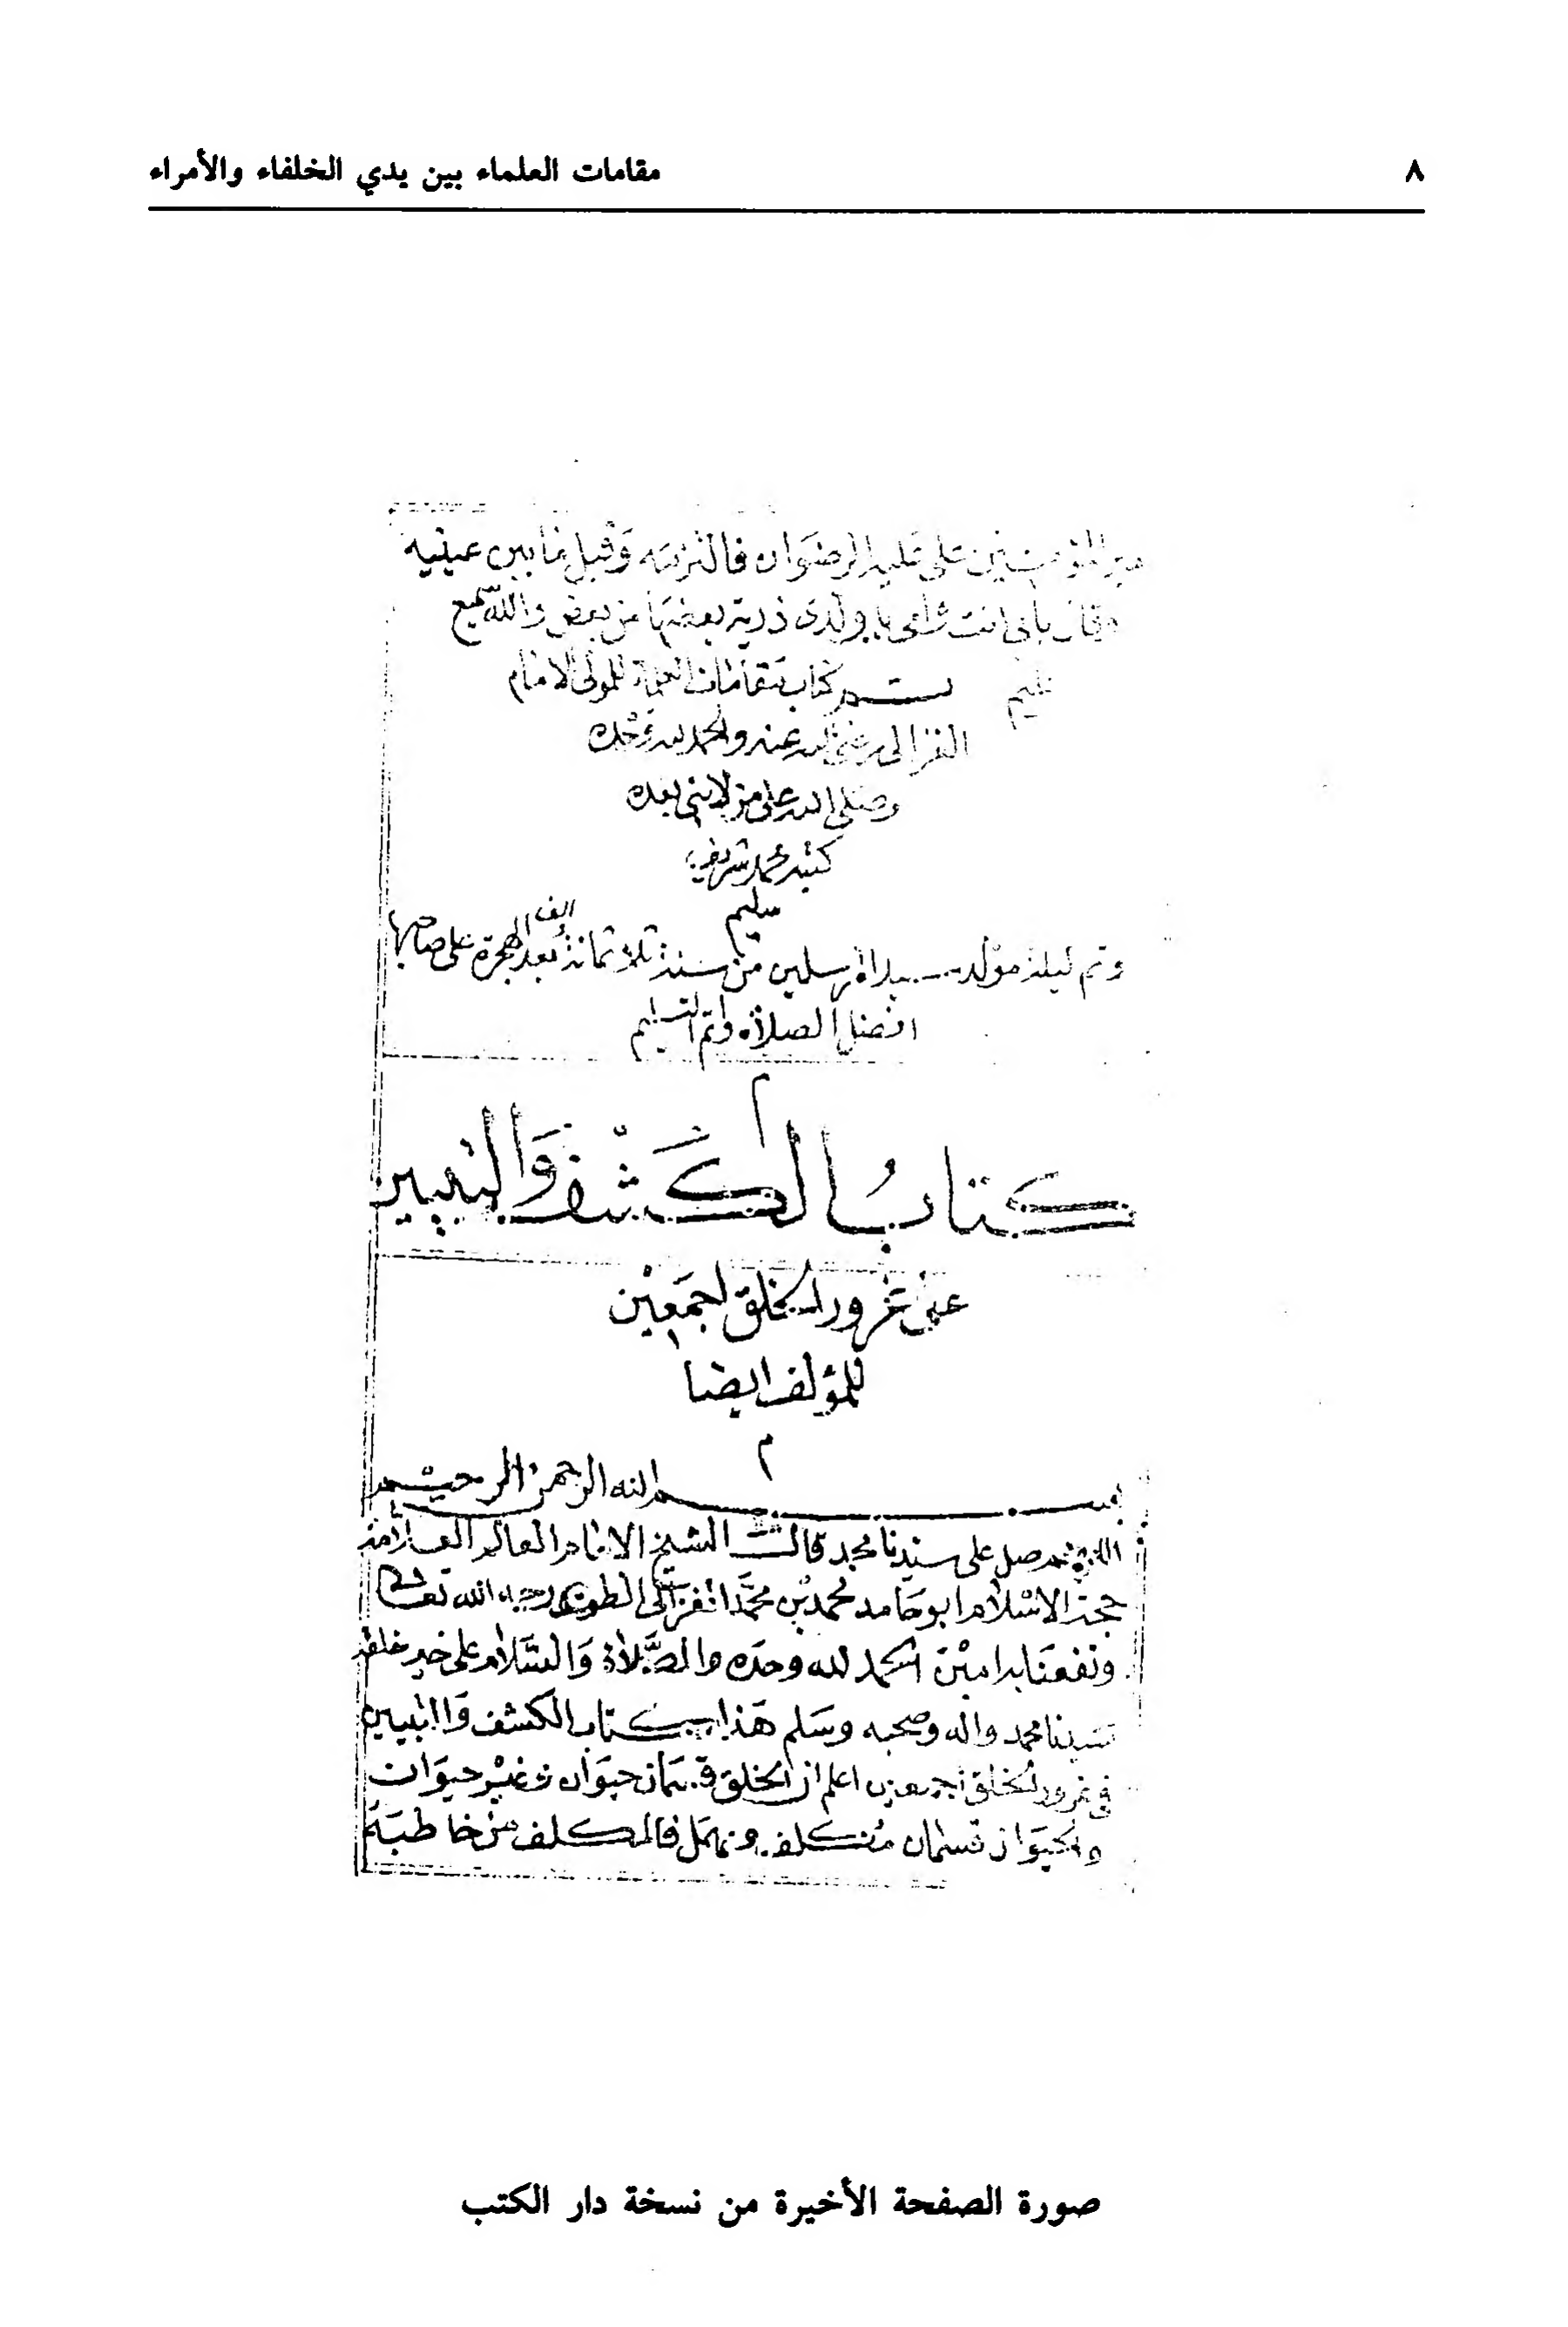 ٨
مقامات العلماء بين يدي الخلفاء والأمراء
المؤمنين على عليه الرضوان فالتزمه وقبل ما بين عينيه
وقال بابى انت وامى يا ولدى ذرية بعضها من بعض والله سميع
عليم
تم كتاب مقامات العلماء للمولى الامام
الغزالى رضى الله عنه والحمد لله وحده
وصلى الله على من لا نبى بعده
كتبه محمد شريف
سليم
وتم ليلة مولد سيد المرسلين من سنة ثلاثمائة بعد الف الهجرة على صاحبها
افضل الصلاة واتم التسليم
م
كتاب الكشف والتبيين
غرور الخلق اجمعين
للمؤلف ايضا
م
بسم الله الرحمن الرحيم
اللهم صل على سيدنا محمد قال الشيخ الامام العالم العلامة
حجة الاسلام ابو حامد محمد بن محمد الغزالى الطوسى رحمه الله تعالى
ونفعنا به امين الحمد لله وحده والصلاة والسلام على خير خلقه
سيدنا محمد واله وصحبه وسلم هذا كتاب الكشف والتبيين
فى غرور الخلق اجمعين اعلم ان الخلق قسمان حيوان وغير حيوان
والحيوان قسمان مكلف ومهمل فالمكلف من خاطبه
صورة الصفحة الأخيرة من نسخة دار الكتب